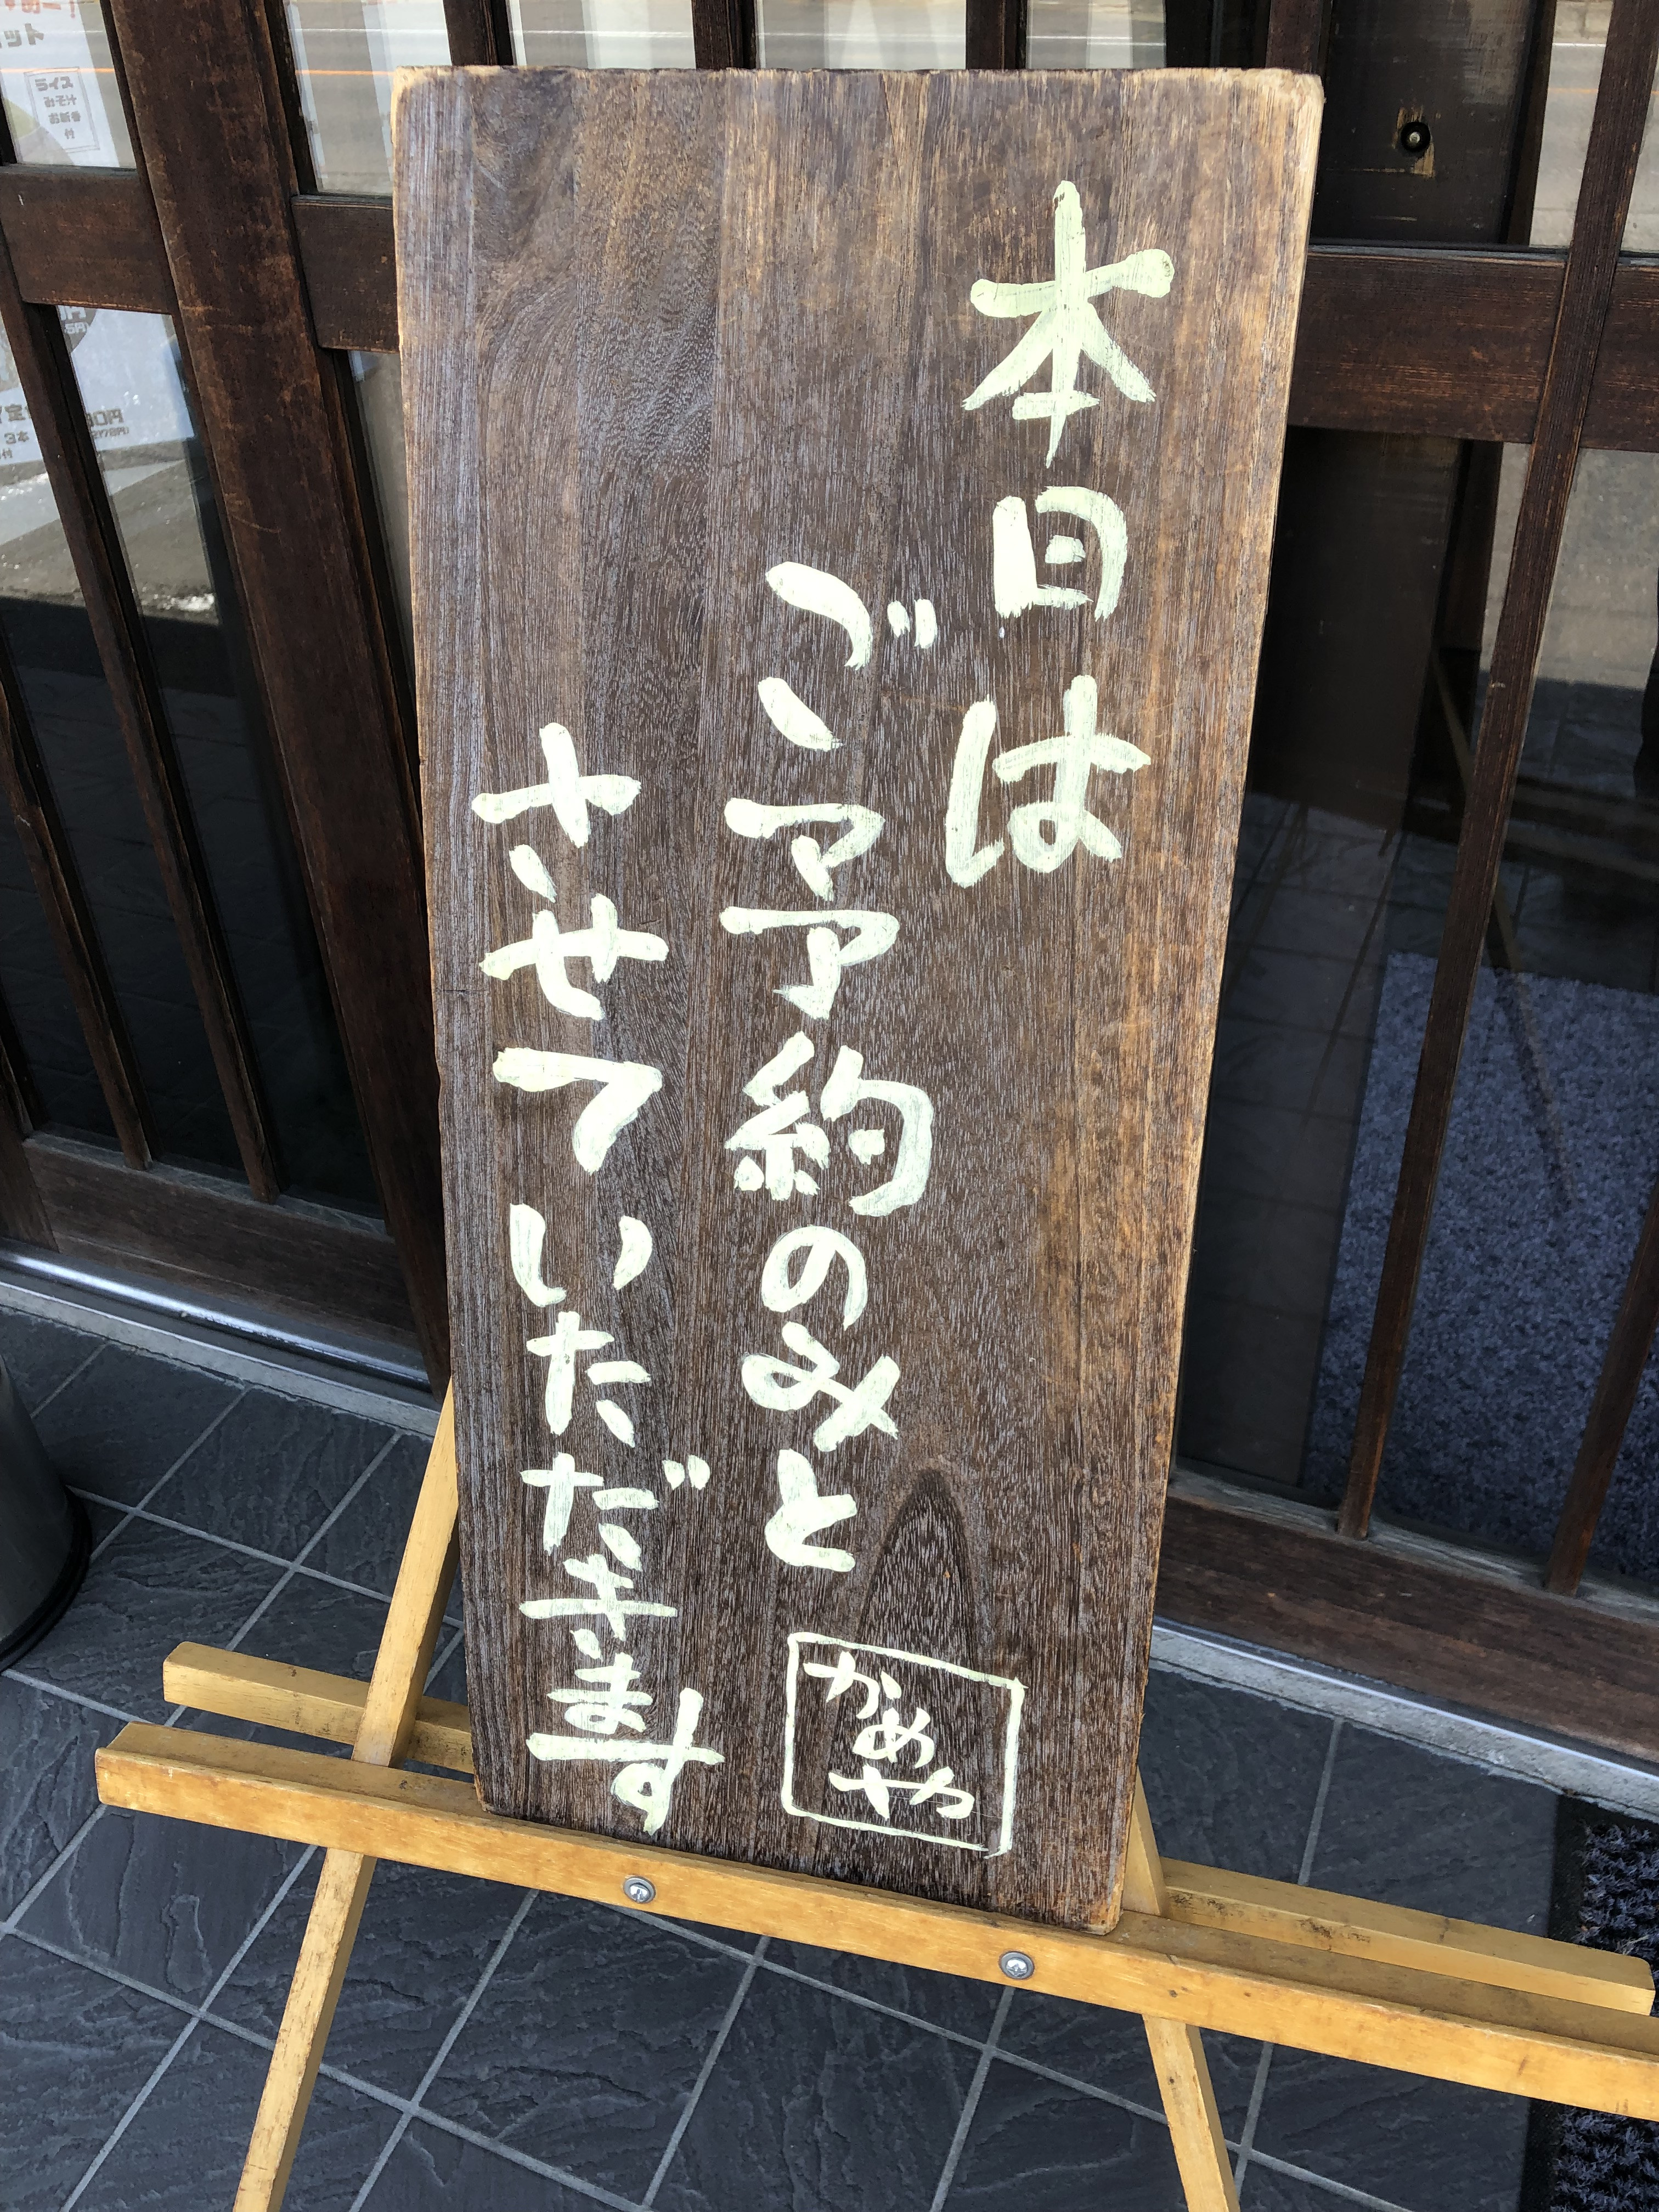 本日は
ご予約のみと
させていただきます
かめや
ット
ライス
みそ汁
お新香
付
3本